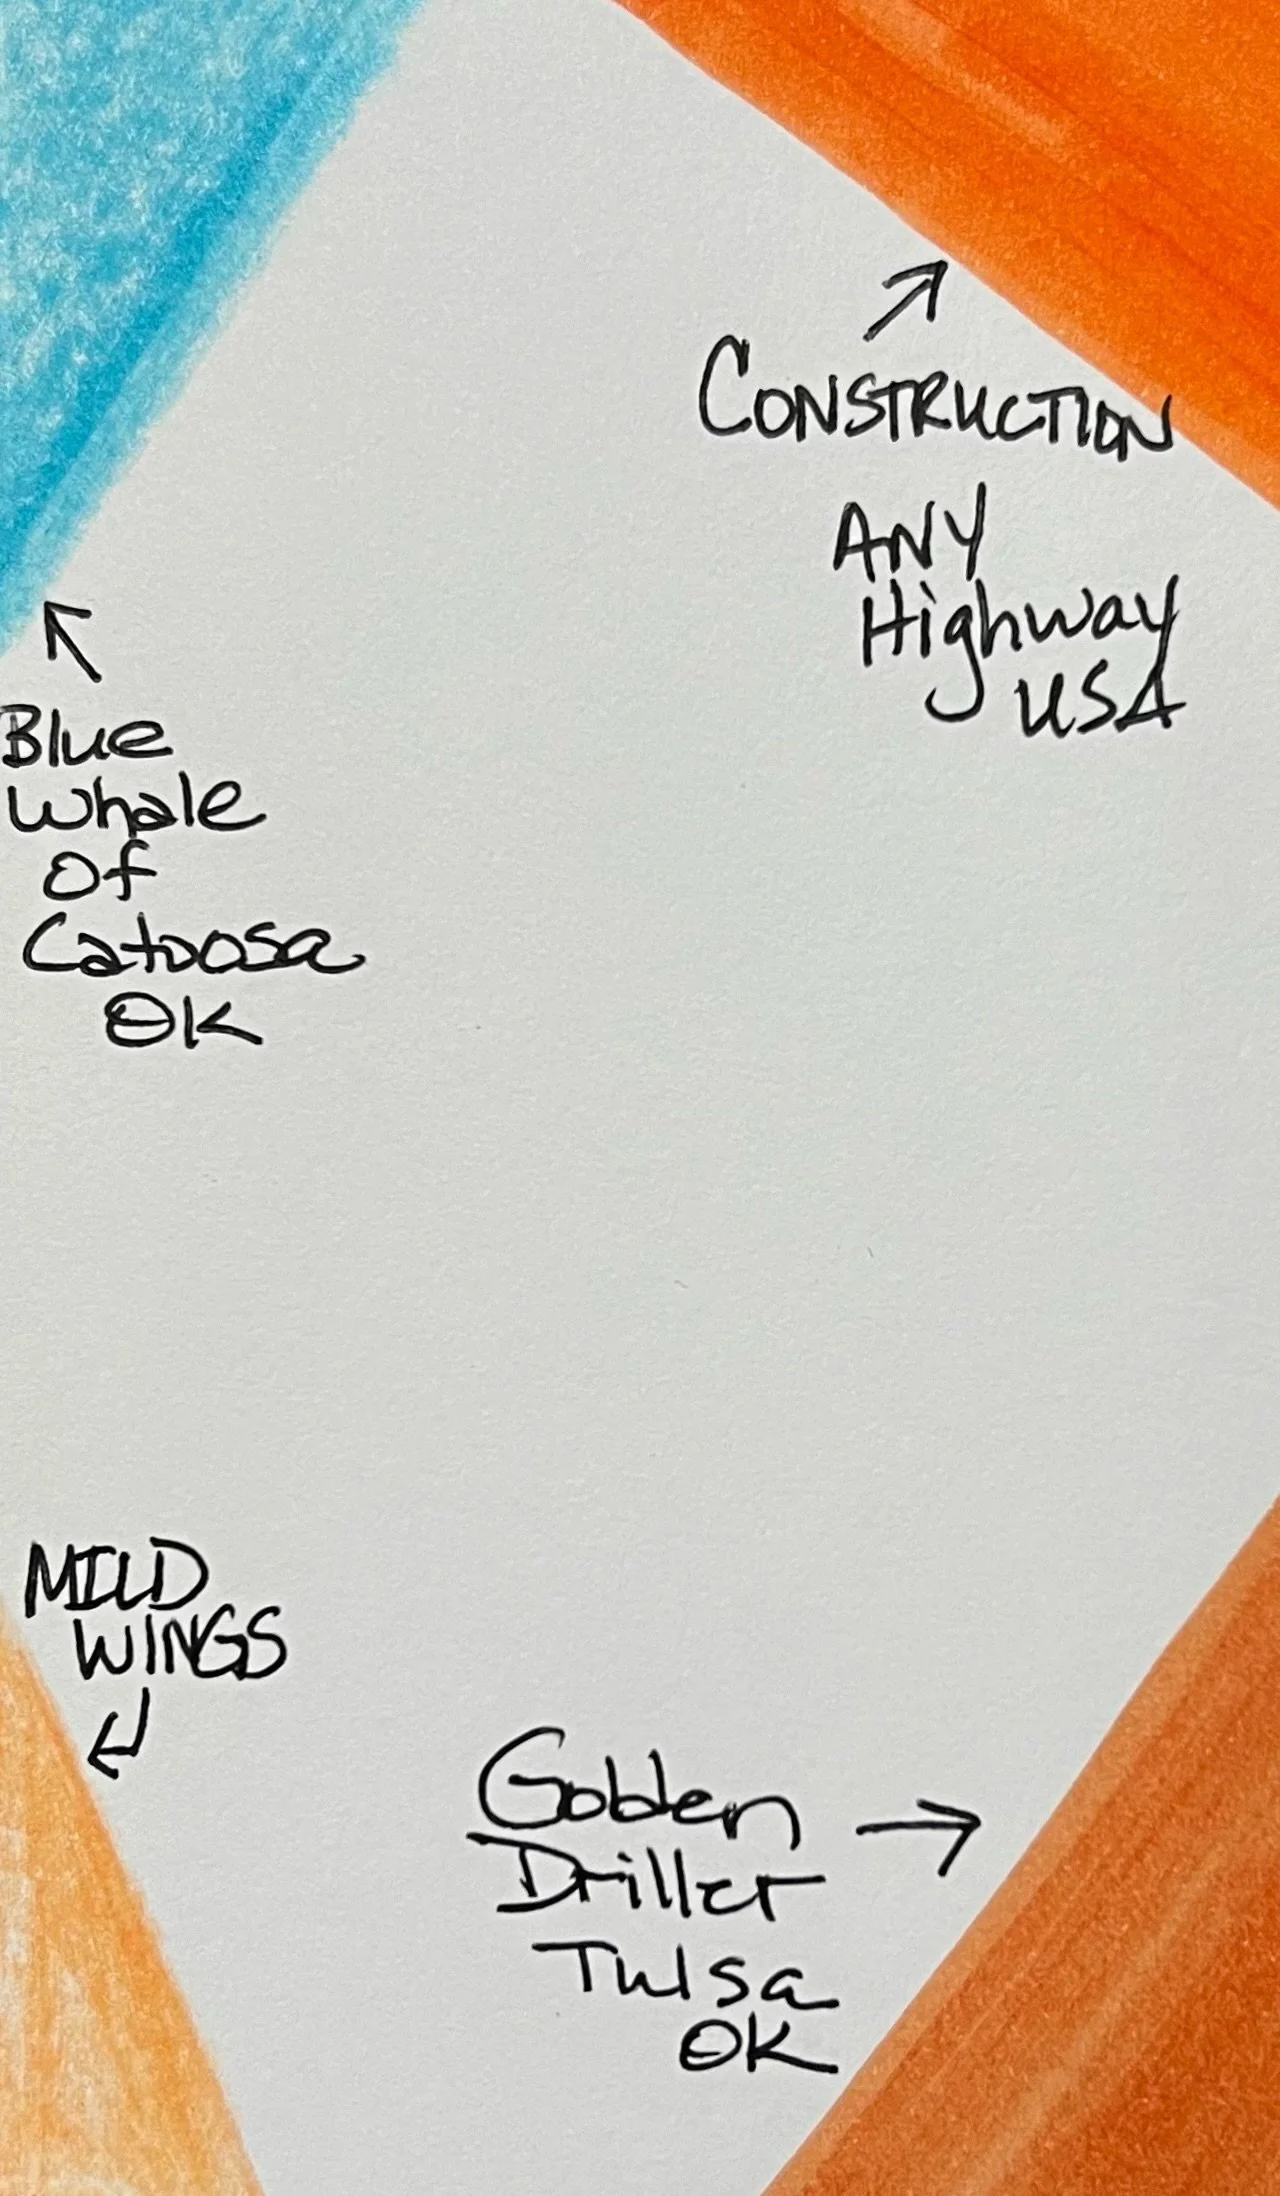 CONSTRUCTION
ANY
Highway
USA
Blue
Whale
Of
Catoosa
OK
MILD
WINGS
Golden
Driller
Tulsa
OK